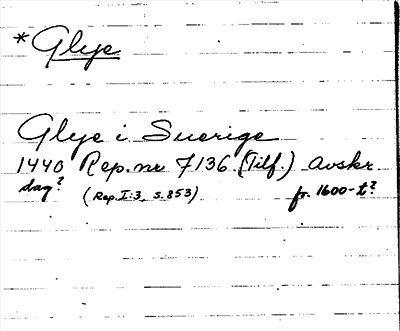 * Glye
Glye i Suerige
1440 Rep. nr 7136 (Tilf.) Avskr.
dag? (Rep. I:3, s. 853) fr. 1600-t?